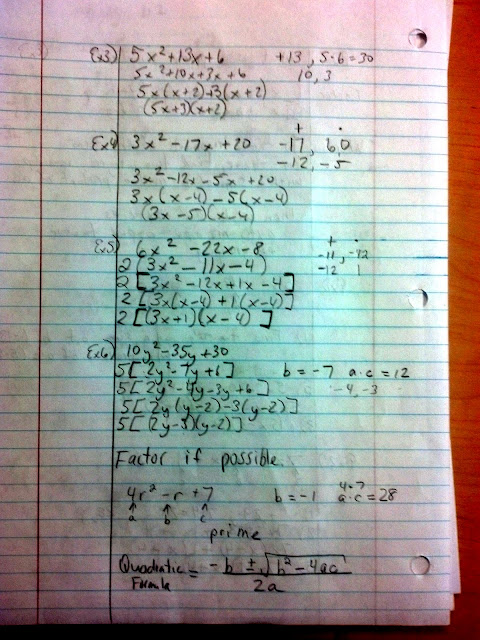 Ex3) 5x²+13x+6 +13, 5·6=30
5x²+10x+3x+6 10, 3
5x(x+2)+3(x+2)
(5x+3)(x+2)
+ ·
Ex4) 3x²-17x+20 -17, 60
-12, -5
3x²-12x-5x+20
3x(x-4)-5(x-4)
(3x-5)(x-4)
+ ·
Ex5) 6x²-22x-8 -11, -12
2(3x²-11x-4) -12 1
2[3x²-12x+1x-4]
2[3x(x-4)+1(x-4)]
2[(3x+1)(x-4)]
Ex6) 10y²-35y+30
5[2y²-7y+6] b=-7 a·c=12
5[2y²-4y-3y+6] -4, -3
5[2y(y-2)-3(y-2)]
5[(2y-3)(y-2)]
Factor if possible.
4·7
4r²-r+7 b=-1 a·c=28
↑ ↑ ↑
a b c
prime
Quadratic Formula = -b ± √b²-4ac
2a